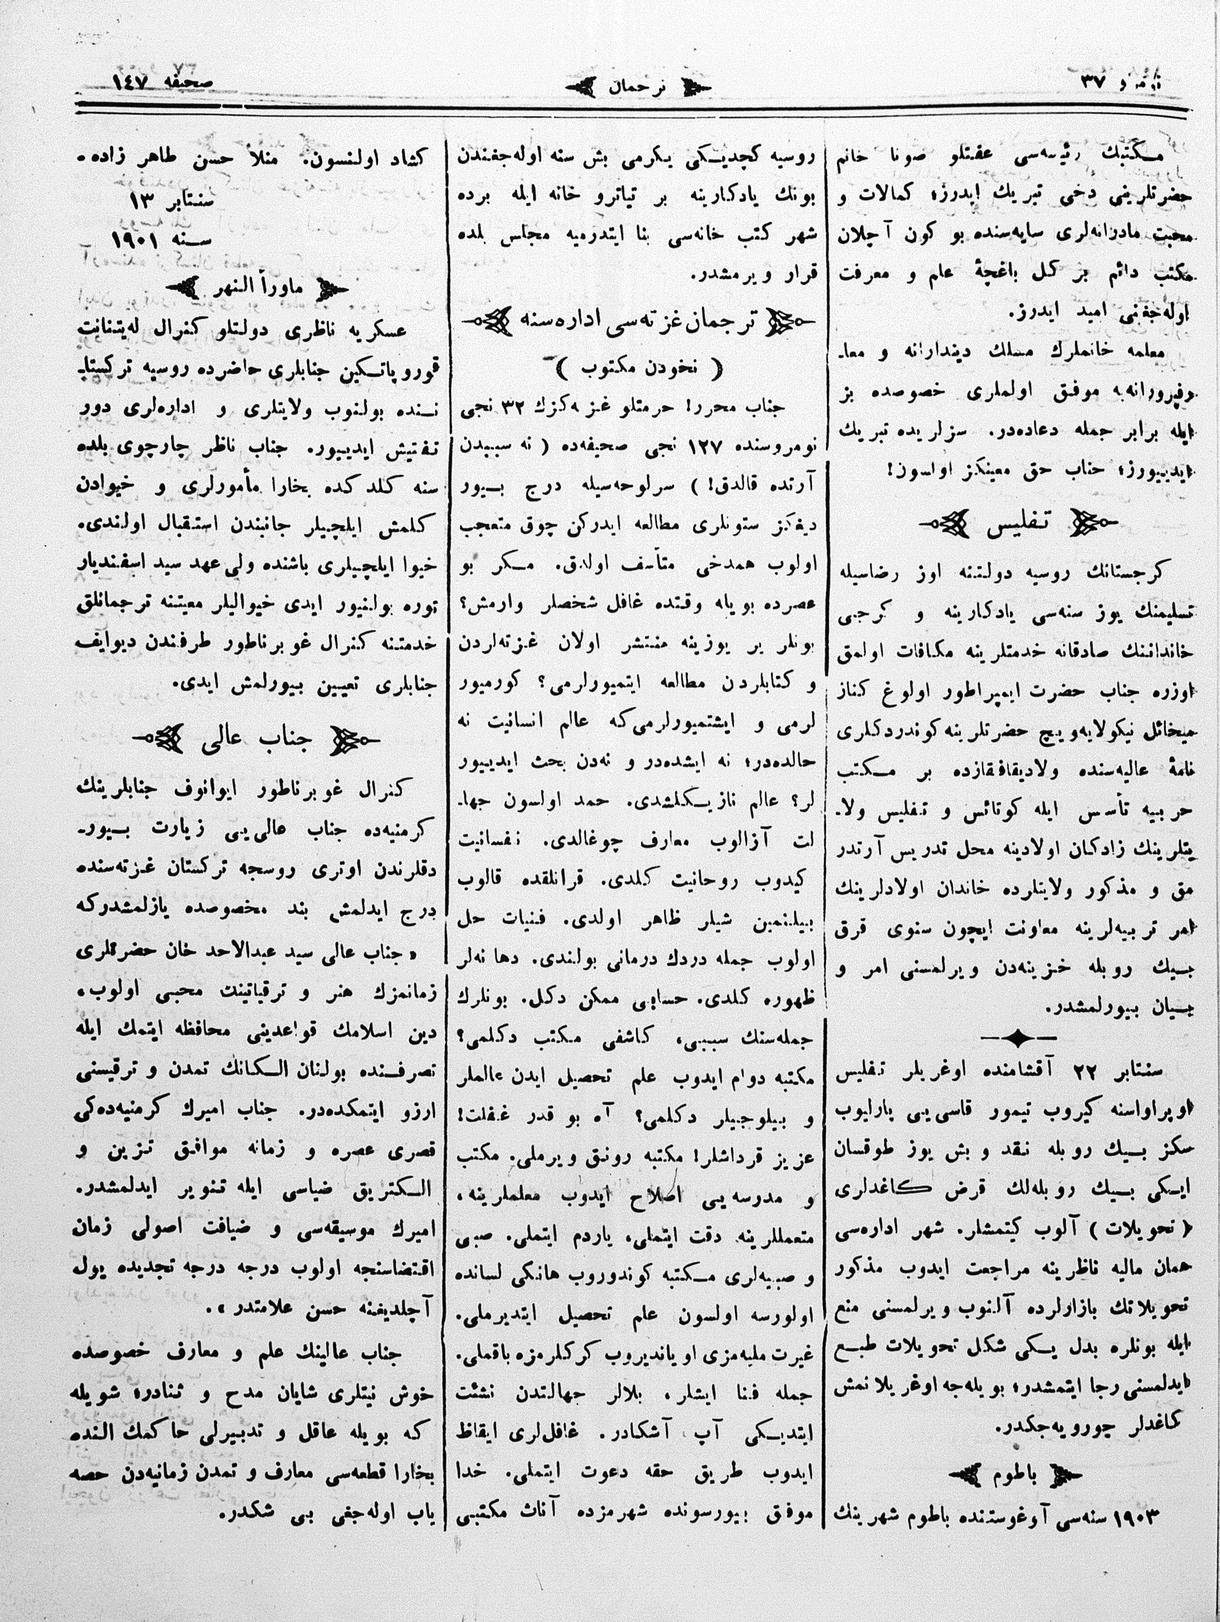 نومرو ٣٧
ترجمان
صحيفه ١٤٧
مكتبك رئيسه‌سى عفتلو صونا خانم
حضرتلرينى دخى تبريك ايدرز؛ كمالات و
محبت مادرانه‌لرى سايه‌سنده بو كون آچلان
مكتب دائم بر كل باغچهٔ علم و معرفت
اوله‌جغنى اميد ايدرز.
معلمه خانملرك مسلك ديندارانه و معا-
رفپرورانه‌يه موفق اولملرى خصوصده بز
ايله برابر جمله دعاده‌در. سزلريده تبريك
ايدييورز؛ جناب حق معينكز اولسون!
تفليس
كرجستانك روسيه دولتنه اوز رضاسيله
تسليمنك يوز سنه‌سى يادكارينه و كرجى
خاندانىنك صادقانه خدمتلرينه مكافات اولمق
اوزره جناب حضرت ايمپراطور اولوغ كناز
ميخائل نيكولايه‌ويچ حضرتلرينه كوندردكلرى
نامهٔ عاليه‌سنده ولاديقافقازده بر مكتب
حربيه تأسس ايله كوتائس و تفليس ولا-
يتلرينك زادكان اولادينه محل تدريس آرتدر
مق و مذكور ولايتلرده خاندان اولادلرينك
امر تربيه‌لرينه معاونت ايچون سنوى قرق
بيك روبله خزينه‌دن ويرلمسنى امر و
بيان بيورلمشدر.
سنتابر ٢٢ آقشامنده اوغريلر تفليس
اوپراواسنه كيروب تيمور قاسىيى يارليوب
سكز بيك روبله نقد و بش يوز طوقسان
ايكى بيك روبله‌لك قرض كاغدلرى
(تحويلات) آلوب كيتمشلر. شهر اداره‌سى
همان ماليه ناظرينه مراجعت ايدوب مذكور
تحويلاتك بازارلرده آلنوب ويرلمسنى منع
ايله بونلره بدل يكى شكل تحويلات طبع
ايدلمسنى رجا ايتمشدر؛ بويله‌جه اوغريلانمش
كاغدلر چورويه‌جكدر.
باطوم
١٩٠٣ سنه‌سى آوغوستنده باطوم شهرينك
روسيه كچديكى يكرمى بش سنه اوله‌جغندن
بونك يادكارينه بر تياترو خانه ايله برده
شهر كتب خانه‌سى بنا ايتدرميه مجلس بلده
قرار ويرمشدر.
ترجمان غزته‌سى اداره‌سنه
(نخودن مكتوب)
جناب محرر! حرمتلو غزه‌كزك ٣٢ نجى
نومروسنده ١٢٧ نجى صحيفه‌ده (نه سببدن
آرتده قالدق!) سرلوحه‌سيله درج بيور
ديغكز ستونلرى مطالعه ايدركن چوق متعجب
اولوب همدخى متأسف اولدق. مكر بو
عصرده بويله وقتده غافل شخصلر وارمش؟
بونلر ير يوزينه منتشر اولان غزته‌لردن
و كتابلردن مطالعه ايتميورلرمى؟ كورميور
لرمى و ايشتميورلرمى‌كه عالم انسانيت نه
حالده‌در؛ نه ايشده‌در و نه‌دن بحث ايدييور
لر؟ عالم نازيكلشدى. حمد اولسون جها-
لت آزالوب معارف چوغالدى. نفسانيت
كيدوب روحانيت كلدى. قرانلقده قالوب
بيلنمين شيلر ظاهر اولدى. فنيات حل
اولوب جمله دردك درمانى بولندى. دها نه‌لر
ظهوره كلدى. حسابى ممكن دكل. بونلرك
جمله‌سنك سببى، كاشفى مكتب دكلمى؟
مكتبه دوام ايدوب علم تحصيل ايدن عالملر
و بيلوجيلر دكلمى؟ آه بو قدر غفلت!
عزيز قرداشلر! مكتبه رونق ويرملى. مكتب
و مدرسه‌يى اصلاح ايدوب معلملرينه،
متعمللرينه دقت ايتملى، ياردم ايتملى. صبى
و صبيه‌لرى مكتبه كوندوروب هانكى لسانده
اولورسه اولسون علم تحصيل ايتديرملى.
غيرت مليه‌مزى اوياندیروب كركلرمزه باقملى.
جمله فنا ايشلر، بلالر جهالتدن نشئت
ايتديكى آپ آشكادر. غافل‌لرى ايقاظ
ايدوب طريق حقه دعوت ايتملى. خدا
موفق بيورسونده شهرمزده آناث مكتبى
كشاد اولنسون. منلا حسن طاهر زاده.
سنتابر ١٣
سنه ١٩٠١
ماورأ النهر
عسكريه ناظرى دولتلو كنرال له‌يتنانت
قوروپاتكين جنابلرى حاضرده روسيه تركستا-
ننده بولنوب ولايتلرى و اداره‌لرى دور
تفتيش ايدييور. جناب ناظر چارچوى بلده
سنه كلدكده بخارا مأمورلرى و خيوادن
كلمش ايلچيلر جانبندن استقبال اولندى.
خيوا ايلچيلرى باشنده ولى عهد سيد اسفنديار
توره بولنيور ايدى خيواليلر معيتنه ترجمانلق
خدمتنه كنرال غوبرناطور طرفندن ديوايف
جنابلرى تعيين بيورلمش ايدى.
جناب عالى
كنرال غوبرناطور ايوانوف جنابلرينك
كرمنيه‌ده جناب عالى‌يى زيارت بيور-
دقلرندن اوترى روسجه تركستان غزته‌سنده
درج ايدلمش بند مخصوصده يازلمشدركه
«جناب عالى سيد عبدالاحد خان حضرتلرى
زمانمزك هنر و ترقياتينك محبى اولوب،
دين اسلامك قواعدينى محافظه ايتمك ايله
تصرفنده بولنان الكانك تمدن و ترقيسنى
ارزو ايتمكده‌در. جناب اميرك كرمنيه‌ده‌كى
قصرى عصره و زمانه موافق تزين و
الكتريق ضياسى ايله تنوير ايدلمشدر.
اميرك موسيقه‌سى و ضيافت اصولى زمان
اقتضاسنجه اولوب درجه درجه تجديده يول
آچلديغنه حسن علامتدر».
جناب عالينك علم و معارف خصوصده
خوش نيتلرى شايان مدح و ثنادر؛ شويله
كه بويله عاقل و تدبيرلى حاكمك النده
بخارا قطعه‌سى معارف و تمدن زمانيه‌دن حصه
ياب اوله‌جغى بى شكدر.